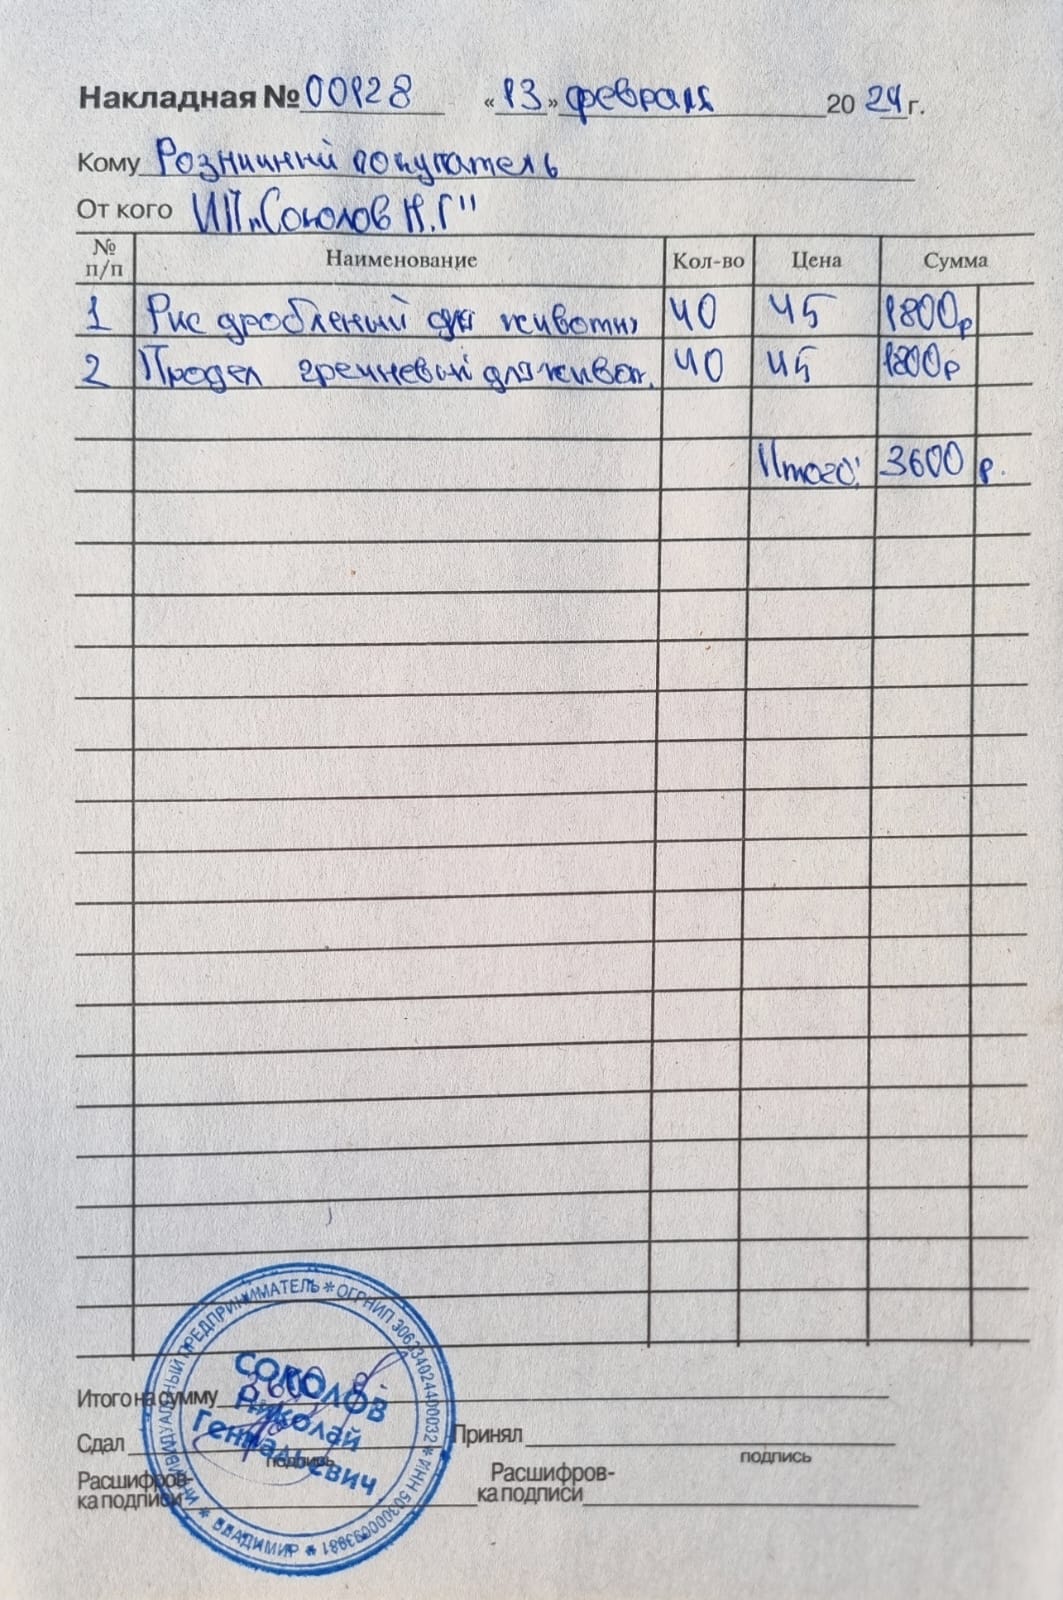 Накладная № 00128 «13» февраля 2024 г.
Кому Розничный покупатель
От кого ИП „Соколов Н.Г"
№ п/п Наименование Кол-во Цена Сумма
1 Рис дробленый для животн 40 45 1800р
2 Продел гречневый для живот. 40 45 1800р
Итого: 3600 р.
Итого на сумму 3600 р.
Сдал Принял
подпись подпись
Расшифров- Расшифров-
ка подписи ка подписи
ИНДИВИДУАЛЬНЫЙ ПРЕДПРИНИМАТЕЛЬ * ОГРНИП 306334024400032 * ИНН 503000093881 * ВЛАДИМИР *
СОКОЛОВ
Николай
Гениальевич